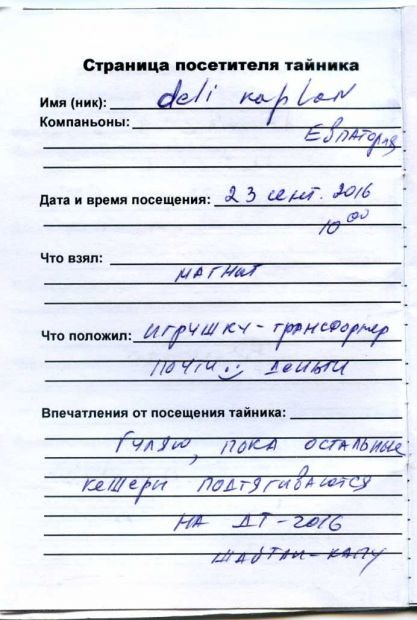 Страница посетителя тайника
Имя (ник): deli kaplan
Компаньоны:
Евпатория
Дата и время посещения: 23 сент. 2016
10 00
Что взял:
магнит
Что положил: игрушку-трансформер
почти :) деньги
Впечатления от посещения тайника:
Гуляю, пока остальные
кешеры подтягиваются
на ДТ-2016
Шайтан-капу